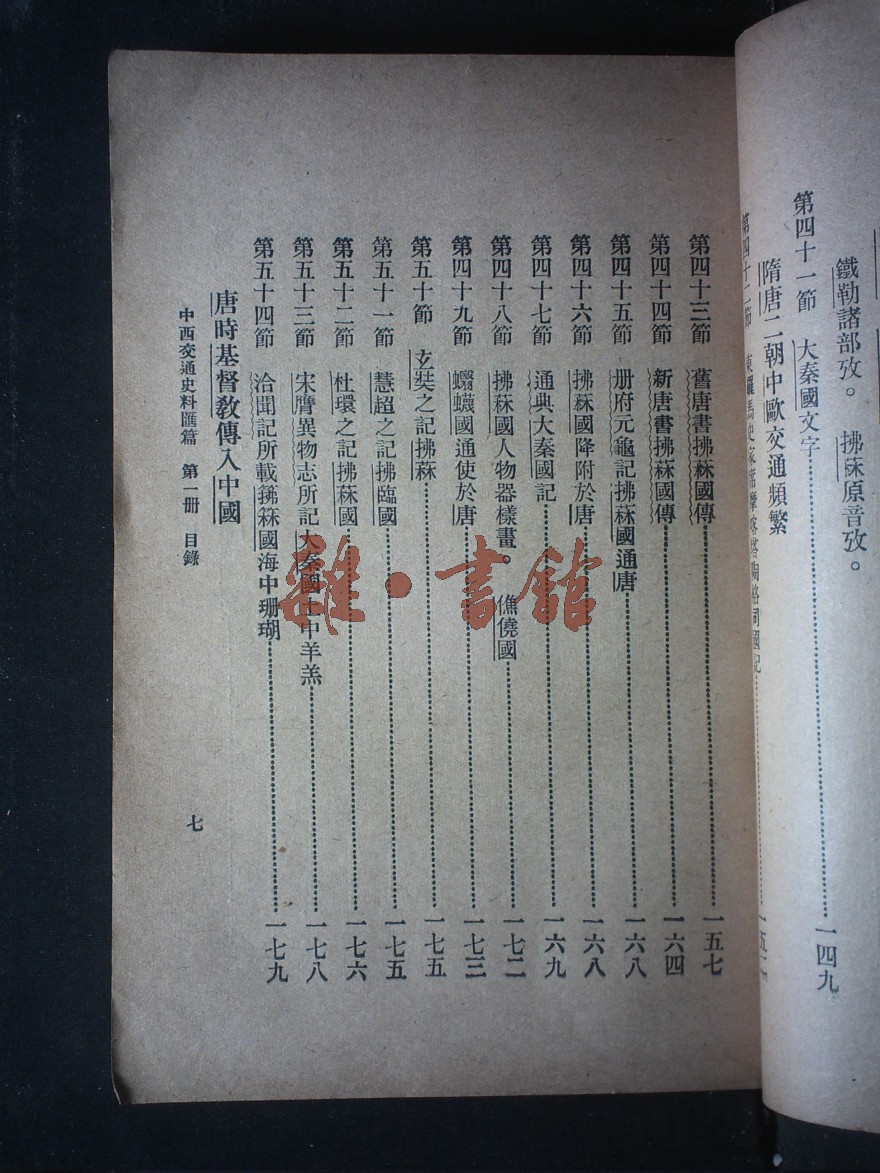 鐵勒諸部攷。 拂菻原音攷。
第四十一節 大秦國文字 一四九
隋唐二朝中歐交通頻繁
第四十二節 東羅馬史家席摩喀塔陶格司國記
第四十三節 舊唐書拂菻國傳 一五七
第四十四節 新唐書拂菻國傳 一六四
第四十五節 册府元龜記拂菻國通唐 一六八
第四十六節 拂菻國降附於唐 一六八
第四十七節 通典大秦國記 一六九
第四十八節 拂菻國人物器樣畫。 僬僥國 一七二
第四十九節 國通使於唐 一七三
第五十節 玄奘之記拂菻 一七五
第五十一節 慧超之記拂臨國 一七五
第五十二節 杜環之記拂菻國 一七六
第五十三節 宋膺異物志所記大秦國土中羊羔 一七八
第五十四節 洽聞記所載國海中珊瑚 一七九
唐時基督敎傳入中國
中西交通史料匯篇 第一册 目錄
七
雜·書館